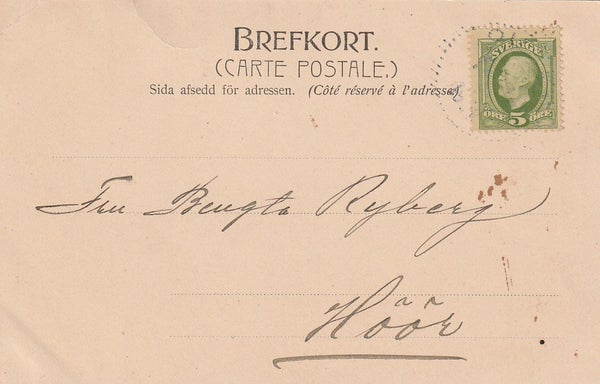 BREFKORT.
(CARTE POSTALE.)
Sida afsedd för adressen. (Côté réservé à l'adresse)
SVERIGE
ÖRE 5 ÖRE
Fru Bengta Ryberg
Höör